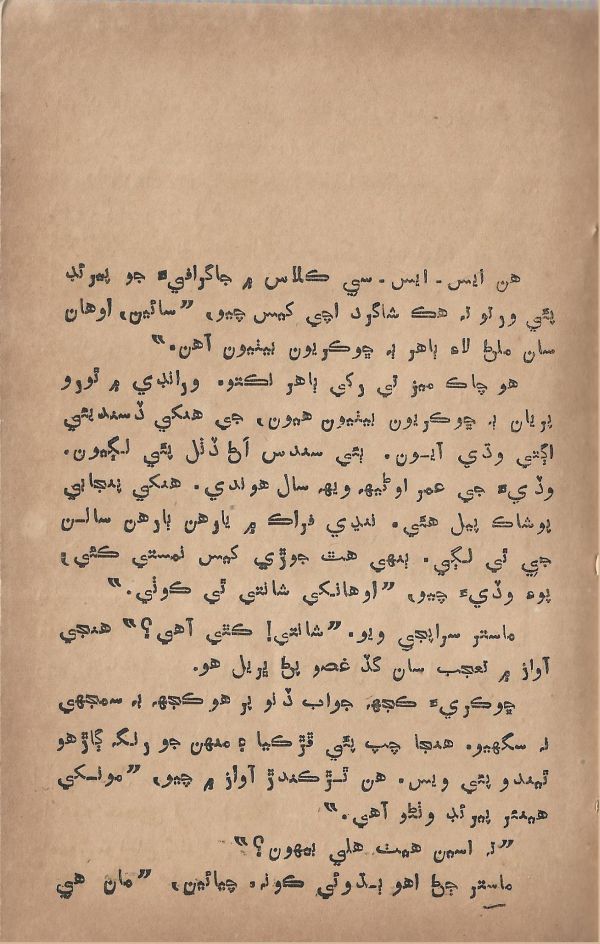 هن ايس. ايس. سي ڪلاس ۾ جاگرافيءَ جو پيرئڊ
پئي ورتو تہ هڪ شاگرد اچي کيس چيو، ”سائين، اوهان
سان ملڻ لاءِ ٻاهر ٻہ ڇوڪريون بيٺيون آهن.“
هو چاڪ ميز تي رکي ٻاهر نڪتو. ورانڊي ۾ ٿورو
پريان ٻہ ڇوڪريون بيٺيون هيون، جي هنکي ڏسنديئي
اڳتي وڌي آيون. ٻئي سندس اڻ ڏٺل پئي لڳيون.
وڏيءَ جي عمر اوڻيهہ ويهہ سال هوندي. هنکي پنجابي
پوشاڪ پيل هئي. ننڍي فراڪ ۾ يارهن ٻارهن سالن
جي ٿي لڳي. ٻنهي هٿ جوڙي کيس نمستي ڪئي،
پوءِ وڏيءَ چيو، ”اوهانکي شانتي ٿي ڪوٺي.“
ماستر سراپجي ويو. ”شانتي! ڪٿي آهي؟“ هنجي
آواز ۾ تعجب سان گڏ غصو پڻ ڀريل هو.
ڇوڪريءَ ڪجهہ جواب ڏنو پر هو ڪجهہ بہ سمجهي
نہ سگهيو. هنجا چپ پئي ڦڙڪيا ۽ منهن جو رنگ ڳاڙهو
ٿيندو پئي ويس. هن ٿڙڪندڙ آواز ۾ چيو، ”مونکي
هينئر پيرئڊ وٺڻو آهي.“
”تہ اسين هيٺ هلي بيهون؟“
ماستر ڄڻ اهو ٻڌوئي ڪونہ. چيائين، ”مان هي